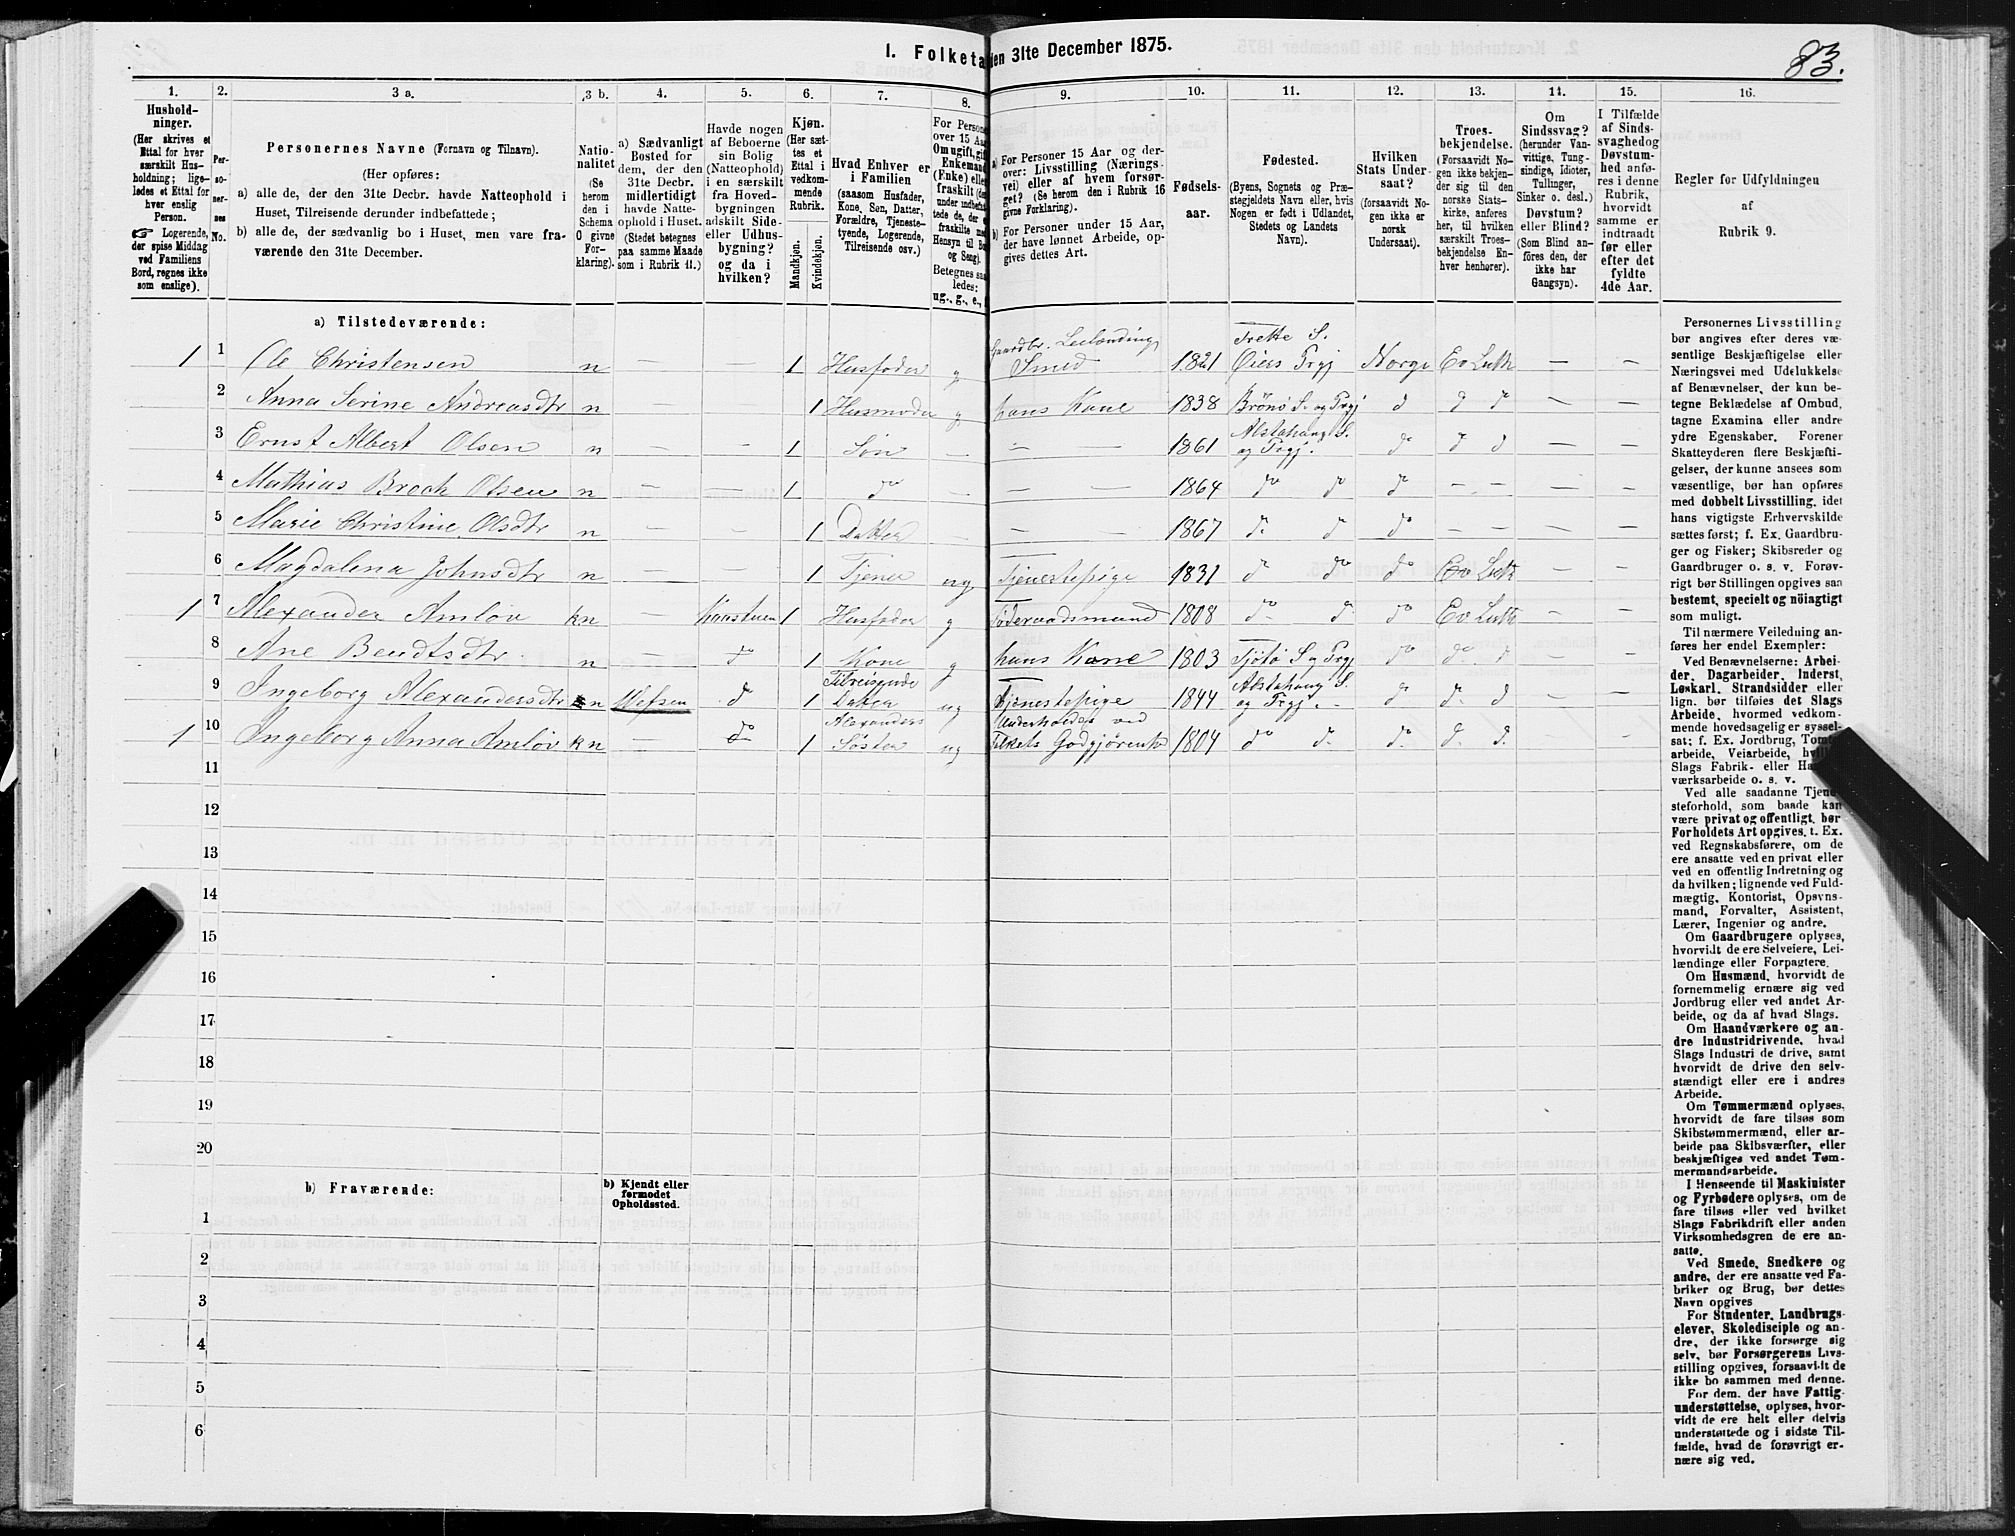 1. Folketæ
den 31te December 1875.
83.
1.
Hushold-
ninger.
(Her skrives et
Ettal for hver
særskilt Hus-
holdning; lige-
ledes et Ettal for
hver enslig
Person.
☞ Logerende,
der spise Middag
ved Familiens
Bord, regnes ikke
som enslige).
2.
Per-
so-
ner-
nes
No.
3 a.
Personernes Navne (Fornavn og Tilnavn).
(Her opføres:
a) alle de, der den 31te Decbr. havde Natteophold i
Huset, Tilreisende derunder indbefattede;
b) alle de, der sædvanlig bo i Huset, men vare fra-
værende den 31te December.
3 b.
Natio-
nalitet
(Se
herom
den i
Schema
O givne
For-
klaring).
4.
a) Sædvanligt
Bosted for
dem, der den
31te Decbr.
midlertidigt
havde Natte-
ophold i Huset.
(Stedet betegnes
paa samme Maade
som i Rubrik 11.)
5.
Havde nogen
af Beboerne
sin Bolig
(Natteophold)
i en særskilt
fra Hoved-
bygningen
adskilt Side-
eller Udhus-
bygning?
og da i
hvilken?
6.
Kjøn.
(Her sæt-
tes et
Ettal i
vedkom-
mende
Rubrik.
Mandkjøn.
Kvindekjøn.
7.
Hvad Enhver er
i Familien
(saasom Husfader,
Kone, Søn, Datter,
Forældre, Tjeneste-
tyende, Logerende,
Tilreisende osv.)
8.
For Persone
over 15 Aar
Om ugift, gift
Enkemand
(Enke) elle
fraskilt
Betegnes saa
ledes:
ug., g., e.,
9.
a) For Personer 15 Aar og der-
over: Livsstilling (Nærings-
vei) eller af hvem forsør-
get? (Se herom den i Rubrik 16
givne Forklaring).
b) For Personer under 15 Aar,
der have lønnet Arbeide, op-
gives dettes Art.
10.
Fødsels-
aar.
11.
Fødested.
(Byens, Sognets og Præ-
stegjeldets Navn eller, hvis
Nogen er født i Udlandet,
Stedets og Landets
Navn).
12.
Hvilken
Stats Under-
saat?
(forsaavidt No-
gen ikke er
norsk
Undersaat).
13.
Troes-
bekjendelse.
(Forsaavidt No-
gen ikke bekjen-
der sig til den
norske Stats-
kirke, anføres
her, til hvilken
særskilt Troes-
bekjendelse En-
hver henhører).
14.
Om
Sindssvag?
(herunder Van-
vittige, Tung-
sindige, Idioter,
Tullinger,
Sinker o. desl.)
Døvstum?
eller Blind?
(Som Blind an-
føres den, der
ikke har
Gangsyn).
15.
I Tilfælde
af Sinds-
svaghed og
Døvstum-
hed anfø-
res i denne
Rubrik,
hvorvidt
samme er
indtraadt
før eller
efter det
fyldte
4de Aar.
16.
Regler for Udfyldningen
af
Rubrik 9.
a) Tilstedeværende:
1 1 Ole Christensen n — — 1 Husfader g Gaardbr. Leilænding, Smed 1821 Trette S. Øiers Prgj Norge Ev Luth — —
2 Anna Serine Andreasdtr n — — 1 Husmoder g hans Kone 1838 Brønø S. og Prgj d d d — —
3 Ernst Albert Olsen n — — 1 Søn — — 1861 Alstahaug S. og Prgj. do d d — —
4 Mathias Broch Olsen n — — 1 do — — 1864 do do do — — — —
5 Marie Christine Olsdtr n — — 1 Datter — — 1867 d. d do — — —
6 Magdalena Johnsdtr n — — 1 Tjener ug Tjenestepige 1831 d do do Ev Luth — —
1 7 Alexander Amlöv kn — 1 Husfader g Föderaadsmand 1808 do d. do Ev Luth — —
8 Ane Bendtsdtr. n do 1 Kone g hans Kone 1803 Tjötö S og Prgj do do d — —
9 Ingeborg Alexandersdtr n Vefsen d 1 Tilreisende Datter ug Tjenestepige 1844 Alstahaug S. og Prgj. d d d — —
1 10 Ingeborg Anna Amlöv kn — do 1 Alexanders Søster ug Underholdes ved 1804 do d. do. d. d. —
11
12
13
14
15
16
17
18
19
20
b) Fraværende:
b) Kjendt eller
formodet
Opholdssted.
1
2
3
4
5
6
Personernes Livsstilling
bør angives efter deres væ-
sentlige Beskjæftigelse eller
Næringsvei med Udelukkelse
af Benævnelser, der kun be-
tegne Beklædelse af Ombud,
tagne Examina eller andre
ydre Egenskaber. Forener
Skatteyderen flere Beskjæfti-
gelser, der kunne ansees som
væsentlige, bør han opføres
med dobbelt Livsstilling, idet
hans vigtigste Erhvervskilde
sættes først; f. Ex. Gaardbru-
ger og Fisker; Skibsreder og
Gaardbruger o. s. v. Forøv-
rigt bør Stillingen opgives saa
bestemt, specielt og nöiagtigt
som muligt.
Til nærmere Veiledning an-
føres her endel Exempler:
Ved Benævnelserne: Arbei-
der, Dagarbeider, Inderst,
Løskarl, Strandsidder eller
lign. bør tilføies det Slags
Arbeide, hvormed vedkom-
mende hovedsagelig er syssel-
sat; f. Ex. Jordbrug, Tomte-
arbeide, Veiarbeide, hvil
Slags Fabrik- eller Ha
værksarbeide o. s. v.
Ved alle saadanne Tjene-
steforhold, som baade kan
være privat og offentligt, bør
Forholdets Art opgives, t. Ex.
ved Regnskabsførere, om de
ere ansatte ved en privat eller
ved en offentlig Indretning og
da hvilken; lignende ved Fuld-
mægtig, Kontorist, Opsyns-
mand, Forvalter, Assistent,
Lærer, Ingeniør og andre.
Om Gaardbrugere oplyses,
hvorvidt de ere Selveiere, Lei-
lændinge eller Forpagtere.
Om Husmænd, hvorvidt de
fornemmelig ernære sig ved
Jordbrug eller ved andet Ar-
beide, og da af hvad Slags.
Om Haandværkere og an-
dre Industridrivende, hvad
Slags Industri de drive, samt
hvorvidt de drive den selv-
stændigt eller ere i andres
Arbeide.
Om Tømmermænd oplyses,
hvorvidt de fare tilsøs som
Skibstømmermænd, eller ar-
beide paa Skibsværfter, eller
beskjæftiges ved andet Tøm-
mermandsarbeide.
I Henseende til Maskinister
og Fyrbødere oplyses, om de
fare tilsøs eller ved hvilket
Slags Fabrikdrift eller anden
Virksomhedsgren de ere an-
satte.
Ved Smede, Snedkere og
andre, der ere ansatte ved Fa-
briker og Brug, bør dettes
Navn opgives
For Studenter, Landbrugs-
elever, Skoledisciple og an-
dre, der ikke forsørge sig
selv, bør Forsørgerens Livs-
stilling opgives, forsaavidt de
ikke bo sammen med denne.
For dem, der have Fattig-
understøttelse, oplyses, hvor-
vidt de ere helt eller delvis
understøttede og i sidste Til-
fælde, hvad de forøvrigt er-
nære sig ved.